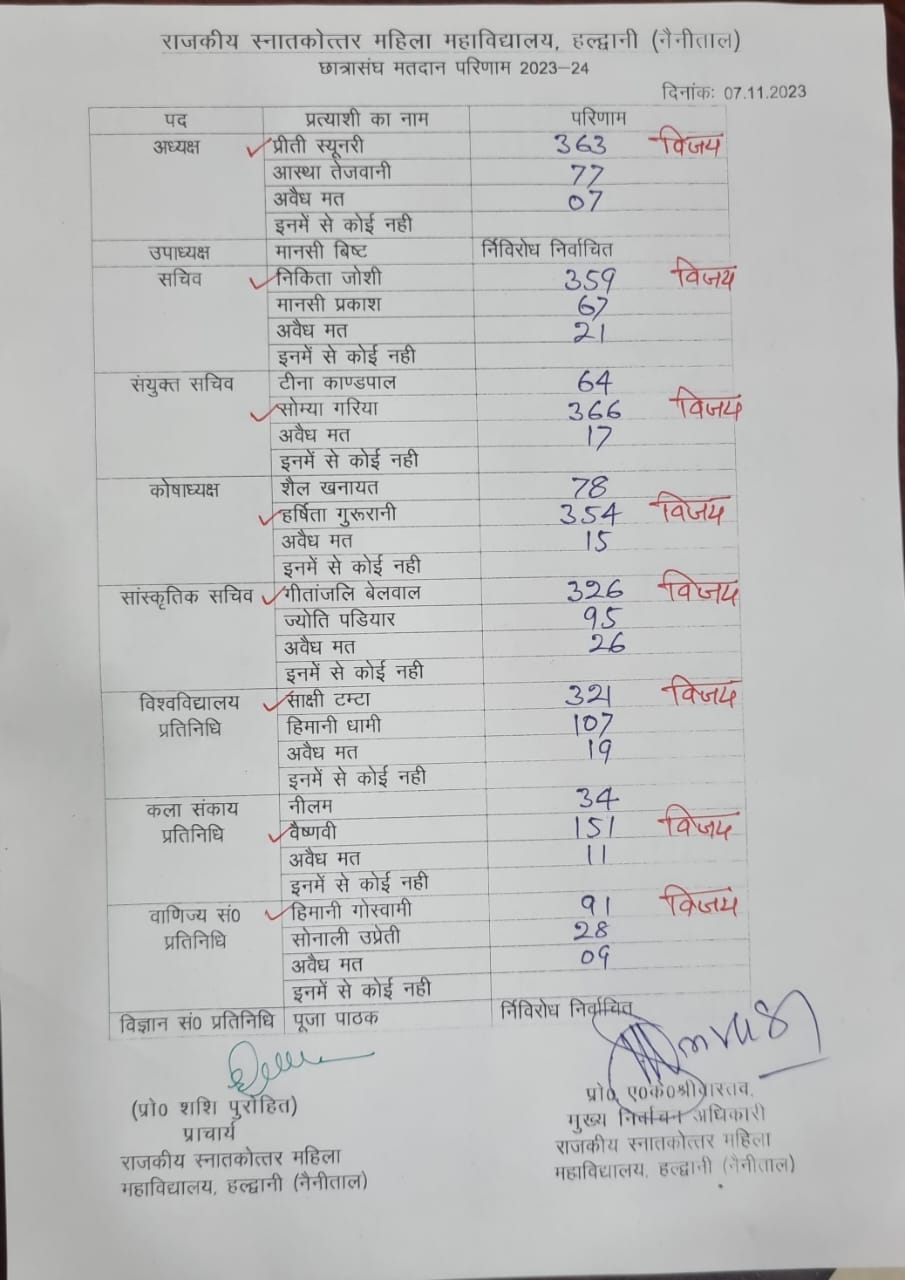 राजकीय स्नातकोत्तर महिला महाविद्यालय, हल्द्वानी (नैनीताल)
छात्रासंघ मतदान परिणाम 2023-24
दिनांकः 07.11.2023
पद प्रत्याशी का नाम परिणाम
अध्यक्ष प्रीती स्यूनरी 363 विजय
आस्था तेजवानी 77
अवैध मत 07
इनमें से कोई नही
उपाध्यक्ष मानसी बिष्ट र्निविरोध निर्वाचित
सचिव निकिता जोशी 359 विजय
मानसी प्रकाश 67
अवैध मत 21
इनमें से कोई नही
संयुक्त सचिव टीना काण्डपाल 64
सोम्या गरिया 366 विजय
अवैध मत 17
इनमें से कोई नही
कोषाध्यक्ष शैल खनायत 78
हर्षिता गुरूरानी 354 विजय
अवैध मत 15
इनमें से कोई नही
सांस्कृतिक सचिव गीतांजलि बेलवाल 326 विजय
ज्योति पडियार 95
अवैध मत 26
इनमें से कोई नही
विश्वविद्यालय साक्षी टम्टा 321 विजय
प्रतिनिधि हिमानी धामी 107
अवैध मत 19
इनमें से कोई नही
कला संकाय नीलम 34
प्रतिनिधि वैष्णवी 151 विजय
अवैध मत 11
इनमें से कोई नही
वाणिज्य सं0 हिमानी गोस्वामी 91 विजय
प्रतिनिधि सोनाली उप्रेती 28
अवैध मत 09
इनमें से कोई नही
विज्ञान सं0 प्रतिनिधि पूजा पाठक र्निविरोध निर्वाचित
(प्रो0 शशि पुरोहित)
प्राचार्य
राजकीय स्नातकोत्तर महिला
महाविद्यालय, हल्द्वानी (नैनीताल)
प्रो0 ए0के0श्रीवास्तव,
मुख्य निर्वाचन अधिकारी
राजकीय स्नातकोत्तर महिला
महाविद्यालय, हल्द्वानी (नैनीताल)